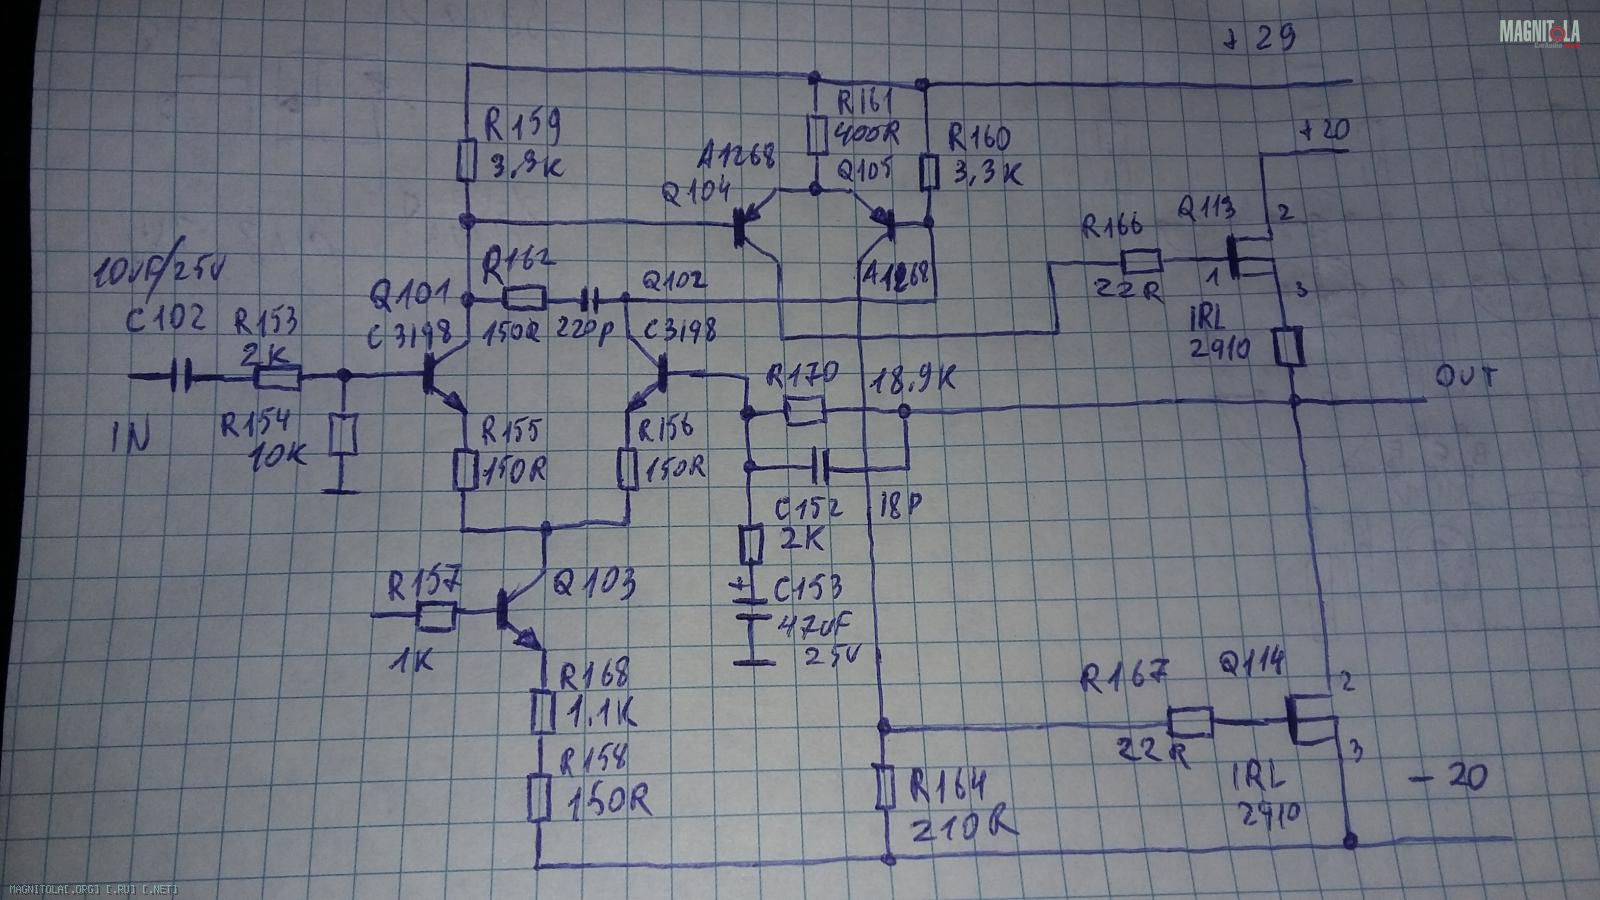 MAGNITOLA
+29
+20
R159
3,3K
R161
400R
R160
3,3K
A1268
Q104
Q105
A1268
R166
22R
Q113
2
1
3
IRL
2910
10uF/25V
C102
R153
2K
R154
10K
IN
Q101
C3198
R162
150R
220P
Q102
C3198
R170
18.9K
OUT
R155
150R
R156
150R
C152
18P
2K
+
C153
47uF
25V
R157
1K
Q103
R168
1.1K
R158
150R
R164
210R
R167
22R
Q114
2
3
IRL
2910
-20
MAGNITOLA[.ORG] [.RU] [.NET]